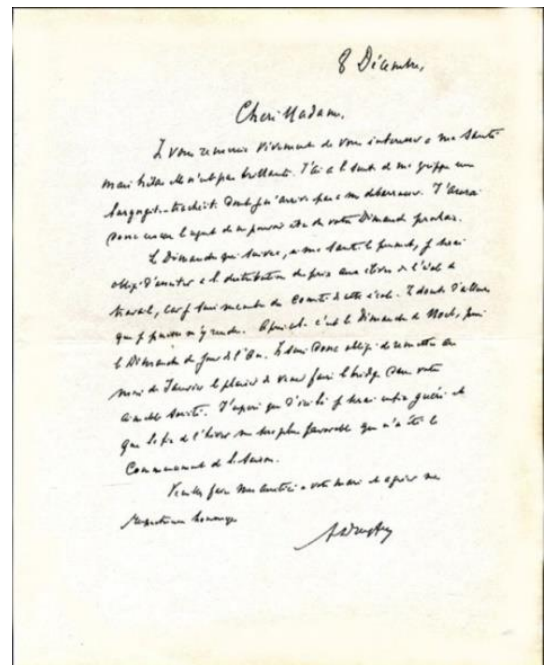 8 Décembre,
Chère Madame,
Je vous remercie vivement de vous intéresser à ma santé
mais hélas elle n'est pas brillante. J'ai à la suite de ma grippe une
laryngite-trachéite dont je n'arrive pas à me débarrasser. J'aurai
donc encore le regret de ne pouvoir être des vôtres Dimanche prochain.
Le Dimanche qui suivra, si ma santé le permet, je serai
obligé d'assister à la distribution des prix aux élèves de l'école de
travail, car je suis membre du Comité de cette école. Je doute d'ailleurs
que je puisse m'y rendre. Après cela c'est le Dimanche de Noël, puis
le Dimanche du Jour de l'An. Je suis donc obligé de remettre au
mois de Janvier le plaisir de venir faire le bridge dans votre
aimable société. J'espère que d'ici là je serai enfin guéri et
que la fin de l'hiver me sera plus favorable que n'a été le
Commencement de la saison.
Veuillez faire mes amitiés à votre mari et agréer mes
respectueux hommages